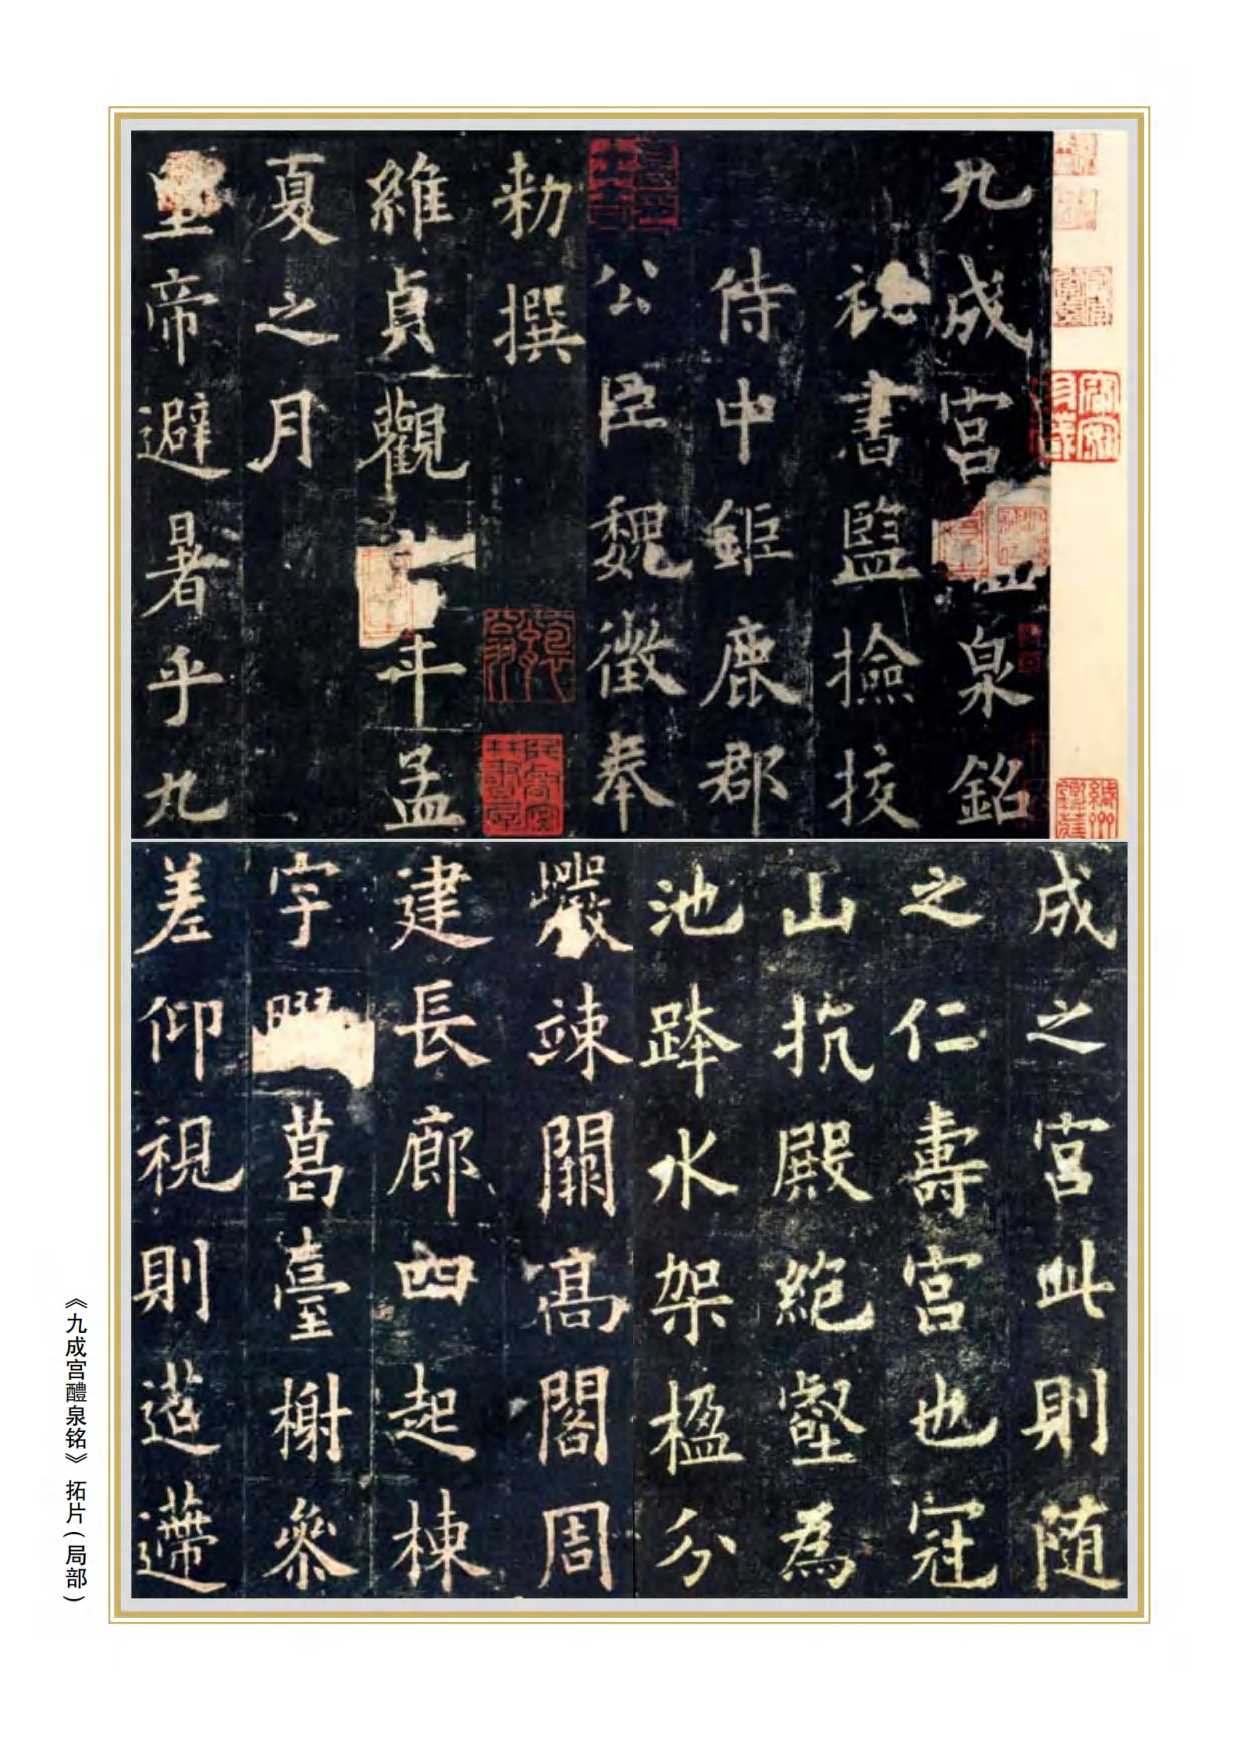 九成宮醴泉銘
秘書監撿挍
侍中鉅鹿郡
公臣魏徵奉
勑撰
維貞觀六年孟
夏之月
皇帝避暑乎九
成之宮此則随
之仁壽宮也冠
山抗殿絶壑為
池跨水架楹分
巖竦闕高閣周
建長廊四起棟
宇膠葛臺榭參
差仰視則迢遰
《九成宫醴泉铭》拓片（局部）